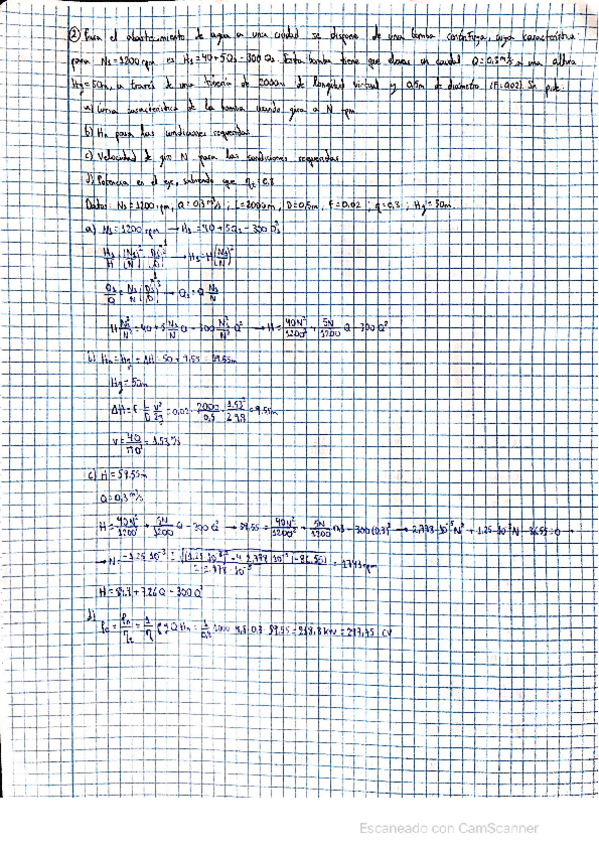 ② Para el abastecimiento de agua a una ciudad se dispone de una bomba centrífuga, cuya característica
para N₁=1200 rpm es H₁=40+5Q₁-300Q₁². Esta bomba tiene que elevar un caudal Q=0,3m³/s a una altura
Hg=50m, a través de una tubería de 2000m de longitud virtual y 0,5m de diámetro (f=0.02). Se pide:
a) Curva característica de la bomba cuando gira a N rpm
b) Hn para las condiciones requeridas
c) Velocidad de giro N para las condiciones requeridas
d) Potencia en el eje, sabiendo que η=0,8
Datos: N₁=1200 rpm, Q=0,3m³/s; L=2000m, D=0,5m, f=0.02; η=0,8; Hg=50m.
a) N₁=1200 rpm → H₁=40+5Q₁-300Q₁²
H₁/H = (N₁/N)² → H₁=H(N₁/N)²
Q₁/Q = N₁/N → Q₁=Q N₁/N
H N₁²/N² = 40+5 N₁/N Q - 300 N₁²/N² Q² → H = 40N²/1200² + 5N/1200 Q - 300Q²
b) Hn=Hg+ΔH=50+9.55=59.55m
Hg=50m
ΔH=f L/D v²/2g = 0.02 · 2000/0,5 · 1.53²/2·9,8 = 9.55m
v = 4Q/πD² = 1.53m/s
c) H=59.55m
Q=0,3m³/s
H = 40N²/1200² + 5N/1200 Q - 300Q² → 59.55 = 40N²/1200² + 5N/1200 0,3 - 300(0.3)² → 2,778·10⁻⁵N² + 1.25·10⁻³N - 86.55=0 →
→ N = 1743 rpm
H = 84.4+7.26Q-300Q²